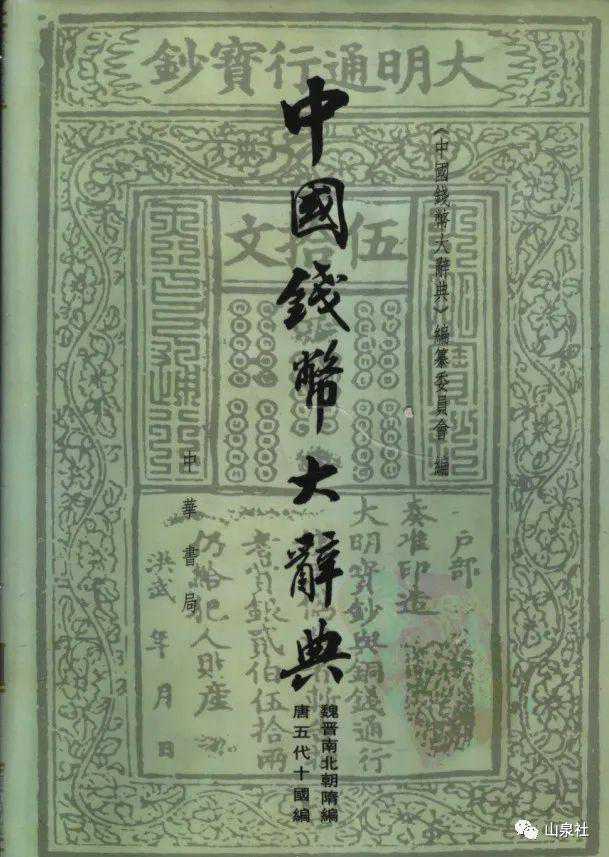 大明通行寶鈔
伍拾文
《中國錢幣大辭典》編纂委員會 編
中國錢幣大辭典
魏晋南北朝隋編
唐五代十國編
中華書局
戶部
奏准印造
大明寶鈔與銅錢通行
者賞銀貳伯伍拾兩
仍給犯人財產
洪武 年 月 日
山泉社